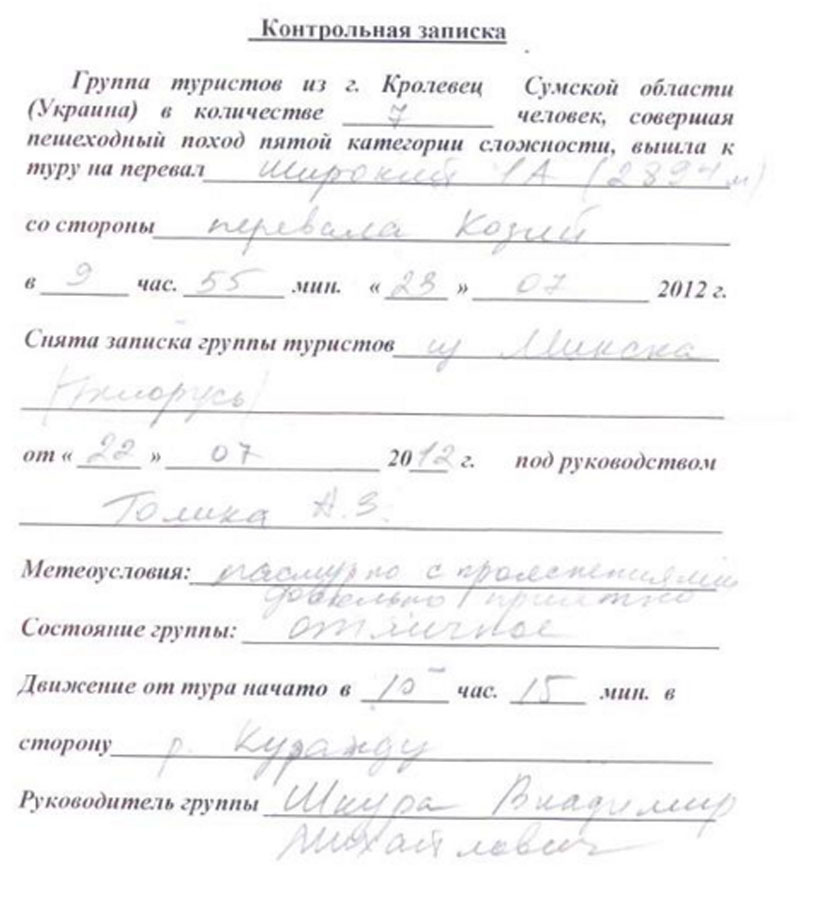 Контрольная записка
Группа туристов из г. Кролевец Сумской области
(Украина) в количестве 7 человек, совершая
пешеходный поход пятой категории сложности, вышла к
туру на перевал Широкий 1А (2894 м)
со стороны перевала Козий
в 9 час. 55 мин. « 23 » 07 2012 г.
Снята записка группы туристов из Минска
(Белорусь)
от « 22 » 07 2012 г. под руководством
Толика А.З.
Метеоусловия: пасмурно с прояснениями
довольно приятно
Состояние группы: отличное
Движение от тура начато в 10 час. 15 мин. в
сторону р. Куражду
Руководитель группы Шкура Владимир
Михайлович